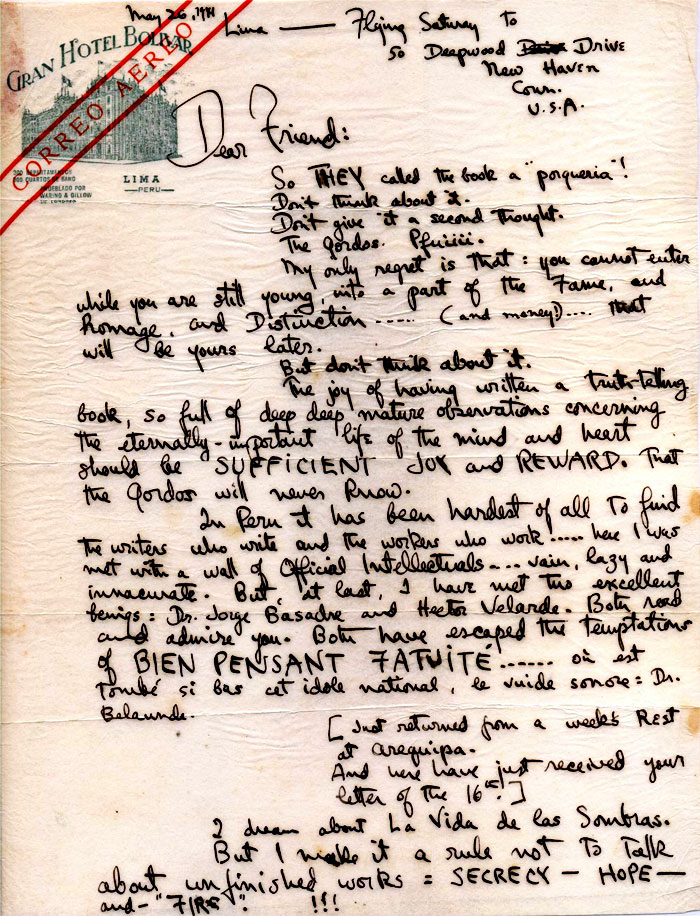 May 26, 1941
Lima — Flying Saturay to
50 Deepwood Drive
New Haven
Conn.
U.S.A.
GRAN HOTEL BOLIVAR
CORREO AEREO
300 DEPARTAMENTOS
CON CUARTOS DE BAÑO
AMUEBLADO POR
WARING & GILLOW
DE LONDRES
LIMA
—PERU—
Dear Friend:
So THEY called the book a "porqueria"!
Don't think about it.
Don't give it a second thought.
The Gordos. Pfuiiii.
My only regret is that: you cannot enter
while you are still young, into a part of the Fame, and
Homage, and Distinction ..... (and money!).... that
will be yours later.
But don't think about it.
The joy of having written a truth-telling
book, so full of deep deep mature observations concerning
the eternally-important life of the mind and heart
should be SUFFICIENT JOY and REWARD. That
the Gordos will never know.
In Peru it has been hardest of all to find
the writers who write and the workers who work ..... here I was
met with a wall of Official Intellectuals .... vain, lazy and
innacurate. But, at last, I have met two excellent
benigs: Dr. Jorge Basadre and Hector Velarde. Both read
and admire you. Both have escaped the temptations
of BIEN PENSANT FATUITÉ ...... où est
tombé si bas cet idole national, le vuide sonore: Dr.
Balaunde.
[Just returned from a week's Rest
at Arequipa.
And here have just received your
letter of the 16th.]
I dream about La Vida de las Sombras.
But I make it a rule not to talk
about unfinished works: SECRECY — HOPE —
and — "FIRE". !!!